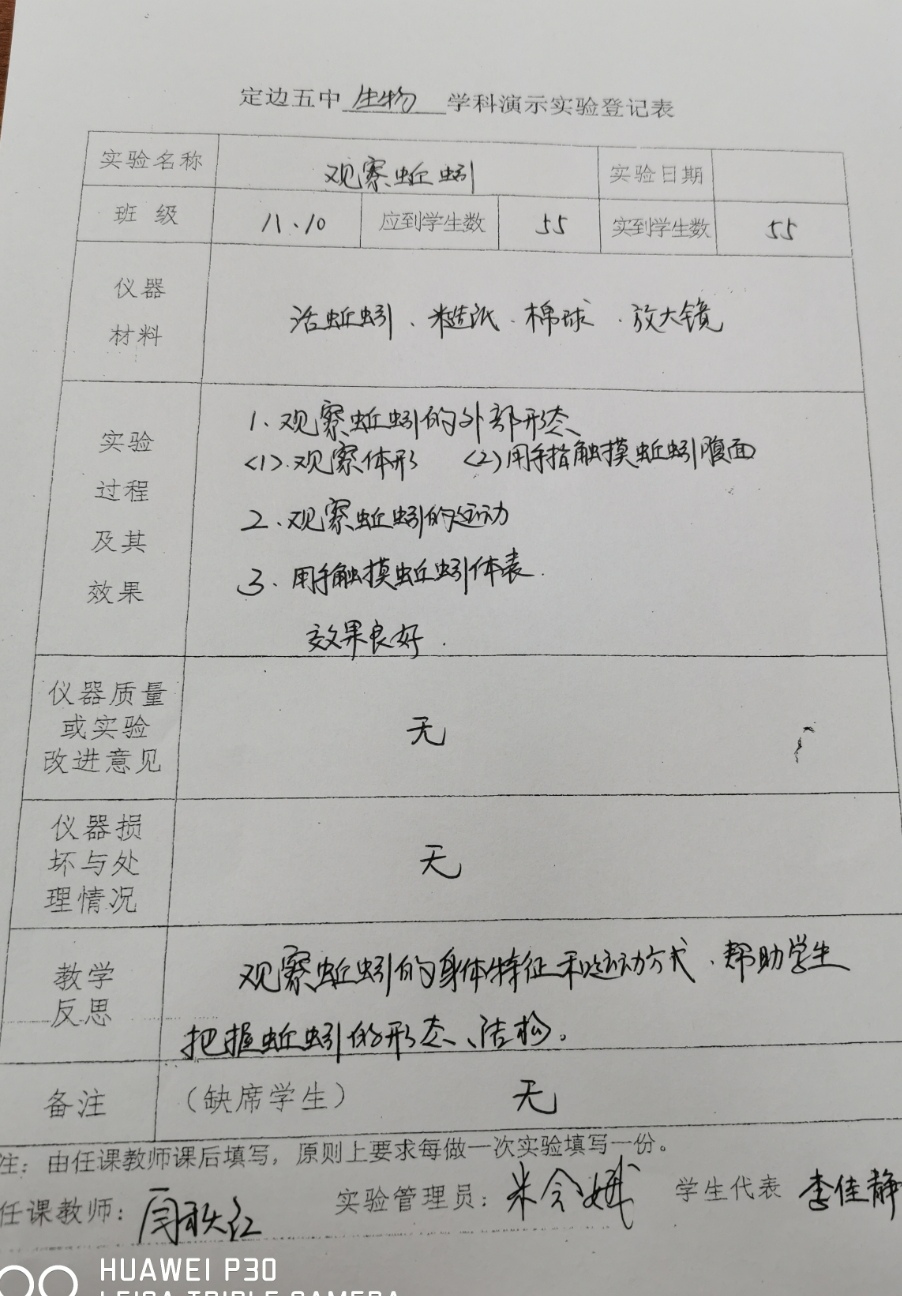 定边五中 生物 学科演示实验登记表
实验名称 观察蚯蚓 实验日期
班 级 11、10 应到学生数 55 实到学生数 55
仪器
材料
活蚯蚓、糙纸、棉球、放大镜
实验
过程
及其
效果
1、观察蚯蚓的外部形态
(1).观察体形 (2)用手指触摸蚯蚓腹面
2、观察蚯蚓的运动
3、用手触摸蚯蚓体表.
效果良好.
仪器质量
或实验
改进意见
无
仪器损
坏与处
理情况
无
教学
反思
观察蚯蚓的身体特征和运动方式、帮助学生
把握蚯蚓的形态、结构。
备注 (缺席学生) 无
注：由任课教师课后填写，原则上要求每做一次实验填写一份。
任课教师： 实验管理员： 学生代表 李佳静
HUAWEI P30
LEICA TRIPLE CAMERA